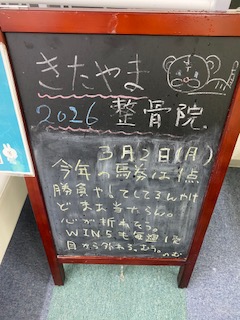 きたやま
2026 整骨院
3月2日(月)
今年の馬券は1点
勝負やしてしてるんやけ
どまぁ当たらん。
心が折れそう。
WIN5も毎週1発
目から外れる。